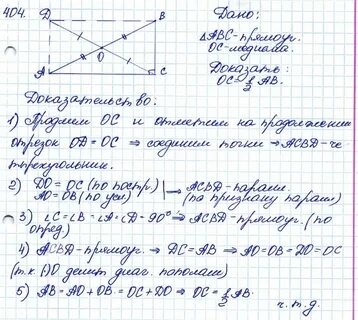 404.
D
B
O
A
C
Дано:
△ABC-прямоуг.
OC-медиана.
Доказать:
OC=½ AB.
Доказательство:
1) Продлим OC и отметим на продолжении
отрезок OD=OC ⇒ соединим точки ⇒ ACBD-че-
тырехугольник.
2) DO=OC (по постр.)
AO=OB (по усл.)
→ ACBD-паралл.
(по признаку паралл)
3) ∠C=∠B=∠A=∠D=90° ⇒ ACBD-прямоуг. (по
опред.)
4) ACBD-прямоуг. ⇒ DC=AB ⇒ AO=OB=DO=OC
(т.к. O делит диаг. пополам)
5) AB=AO+OB=OC+DO ⇒ OC=½ AB.
ч.т.д.